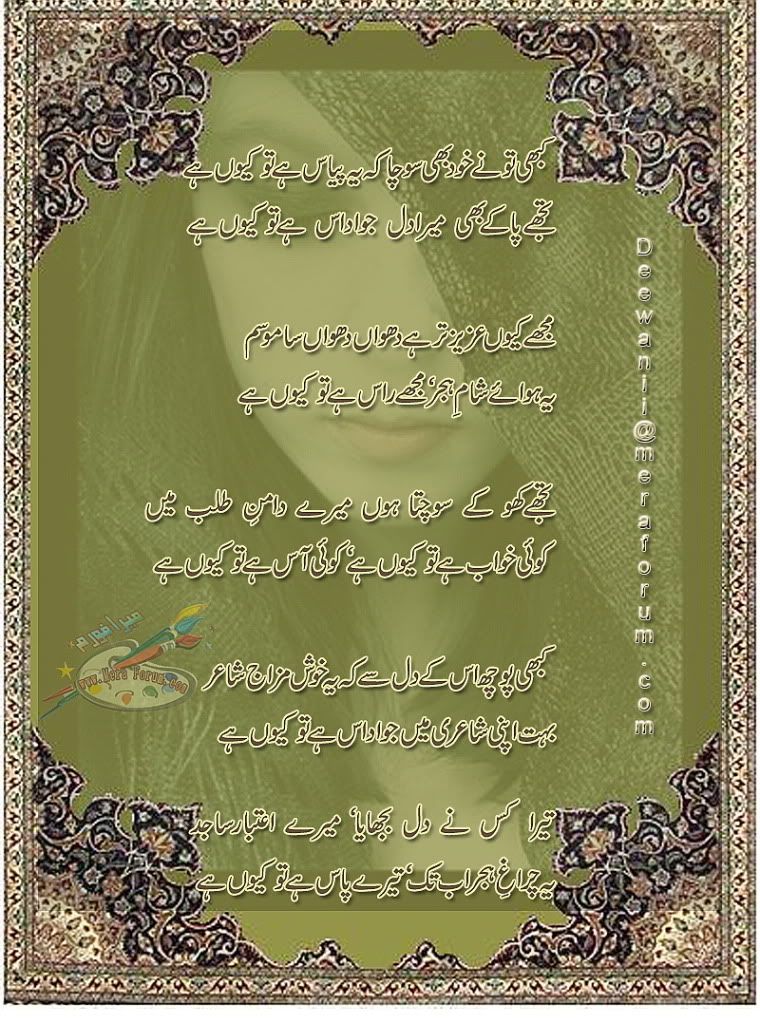 کبھی تو نے خود بھی سوچا کہ یہ پیاس ہے تو کیوں ہے
تجھے پا کے بھی میرا دل جو اداس ہے تو کیوں ہے
مجھے کیوں عزیز تر ہے دھواں دھواں سا موسم
یہ ہوائے شامِ ہجر، مجھے راس ہے تو کیوں ہے
تجھے کھو کے سوچتا ہوں میرے دامنِ طلب میں
کوئی خواب ہے تو کیوں ہے، کوئی آس ہے تو کیوں ہے
کبھی پوچھ اس کے دل سے کہ یہ خوش مزاج شاعر
بہت اپنی شاعری میں جو اداس ہے تو کیوں ہے
تیرا کس نے دل بجھایا، میرے اعتبار ساجد
یہ چراغِ ہجر اب تک، تیرے پاس ہے تو کیوں ہے
Deewanii@meraforum.com
میرا فورم
www.Mera Forum.com